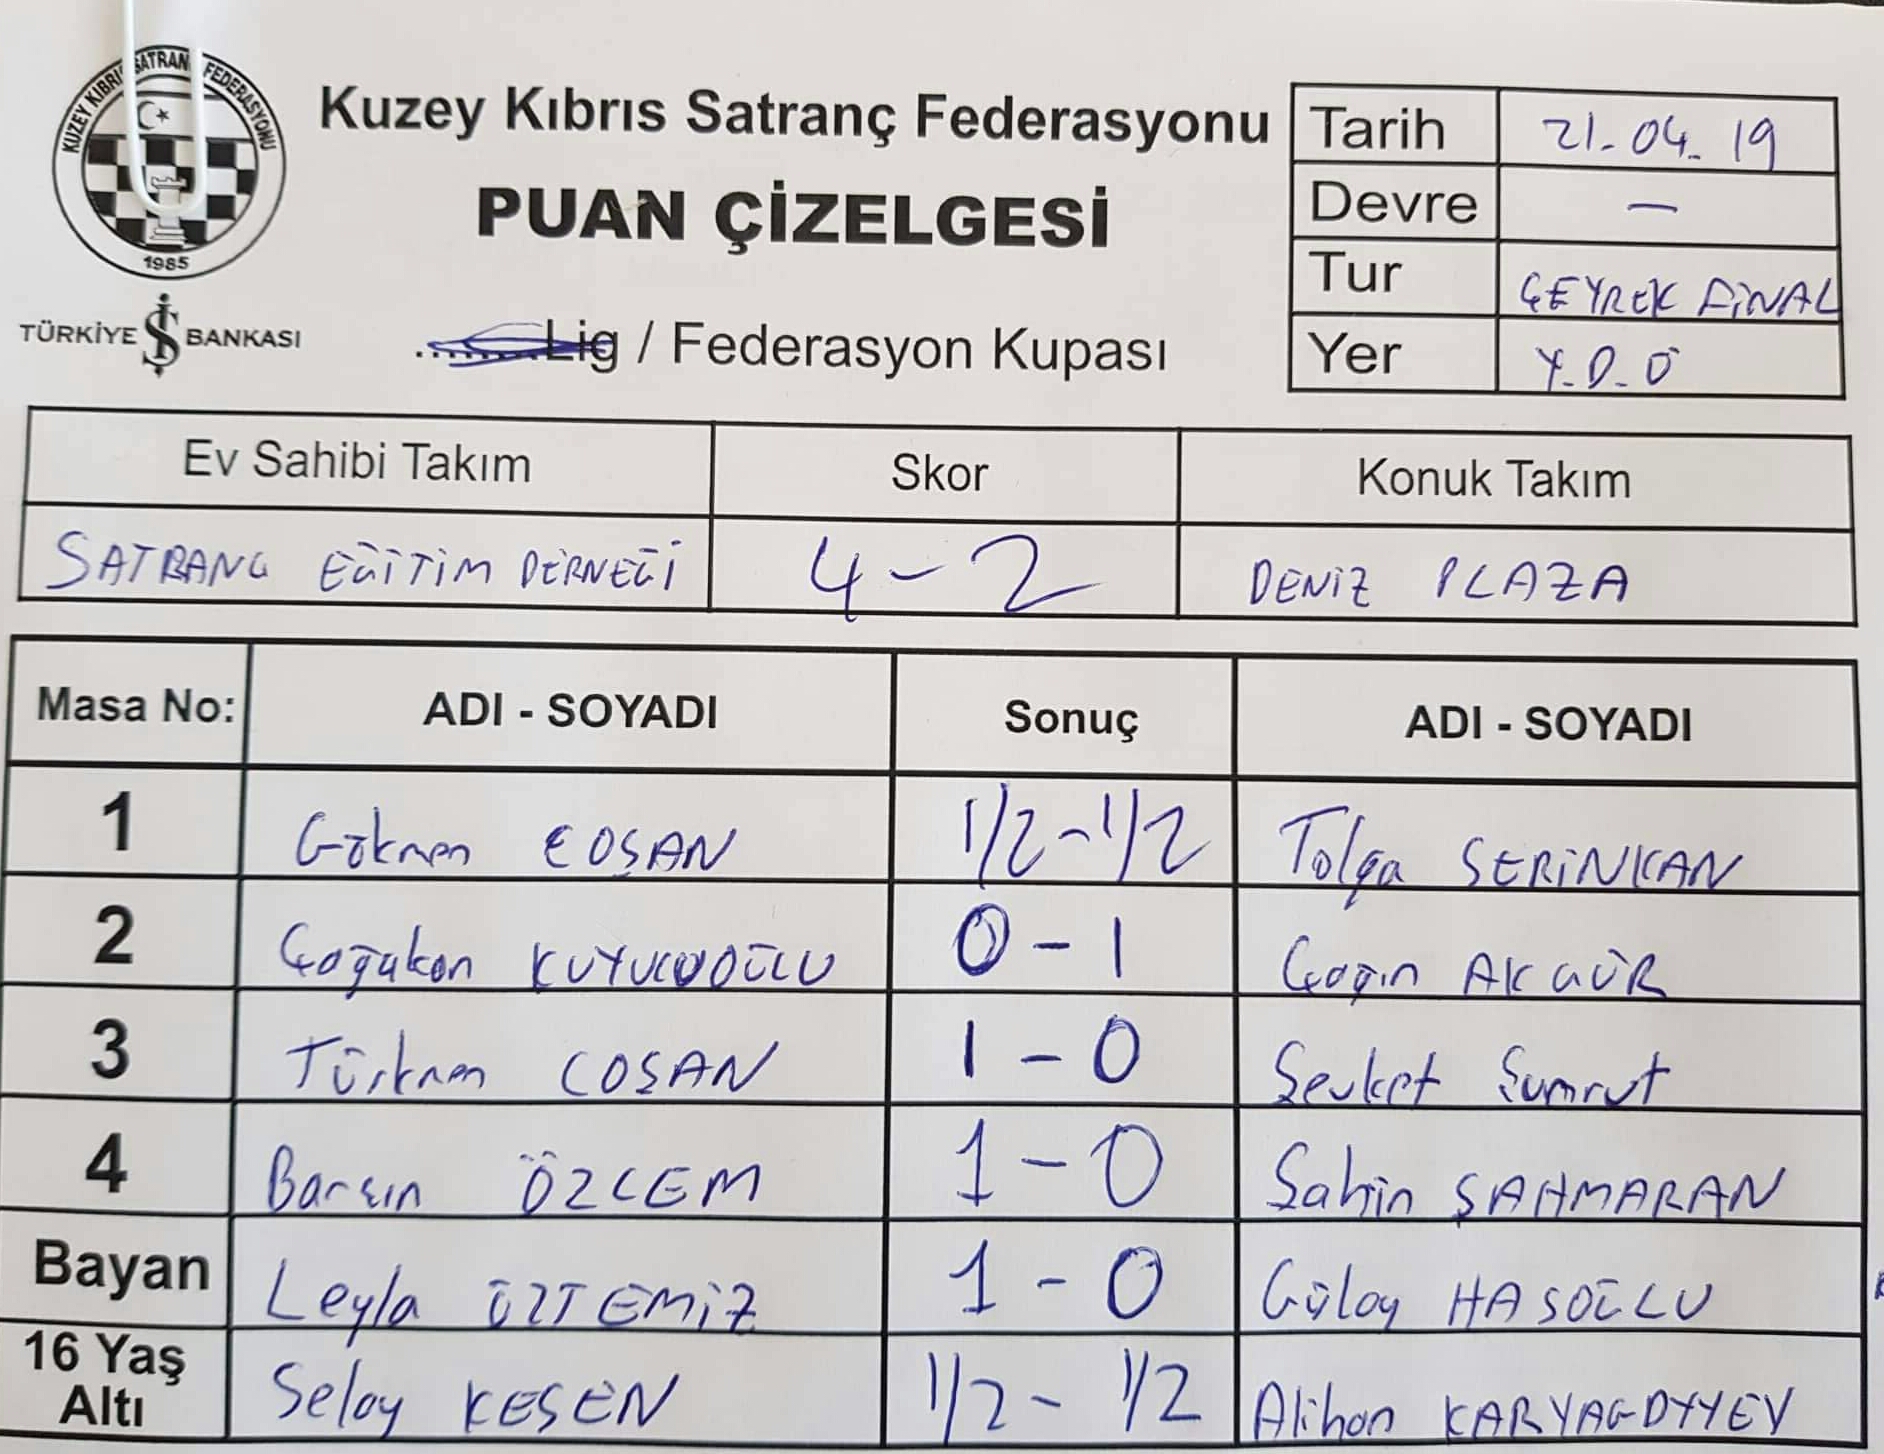 KUZEY KIBRIS SATRANÇ FEDERASYONU
1985
TÜRKİYE İŞ BANKASI
Kuzey Kıbrıs Satranç Federasyonu
PUAN ÇİZELGESİ
........Lig / Federasyon Kupası
Tarih 21.04.19
Devre —
Tur ÇEYREK FİNAL
Yer Y.D.Ü
Ev Sahibi Takım Skor Konuk Takım
SATRANÇ EĞİTİM DERNEĞİ 4 - 2 DENİZ PLAZA
Masa No: ADI - SOYADI Sonuç ADI - SOYADI
1 Gökmen COŞAN 1/2 - 1/2 Tolga SERİNKAN
2 Çağakan KUYUCUOĞLU 0 - 1 Çağın AKGÜR
3 Türkmen COŞAN 1 - 0 Şevket Sumrut
4 Barçın ÖZCEM 1 - 0 Şahin ŞAHMARAN
Bayan Leyla ÖZTEMİZ 1 - 0 Gülay HASOĞLU
16 Yaş Altı Selay KESEN 1/2 - 1/2 Alihan KARYAGDYYEV